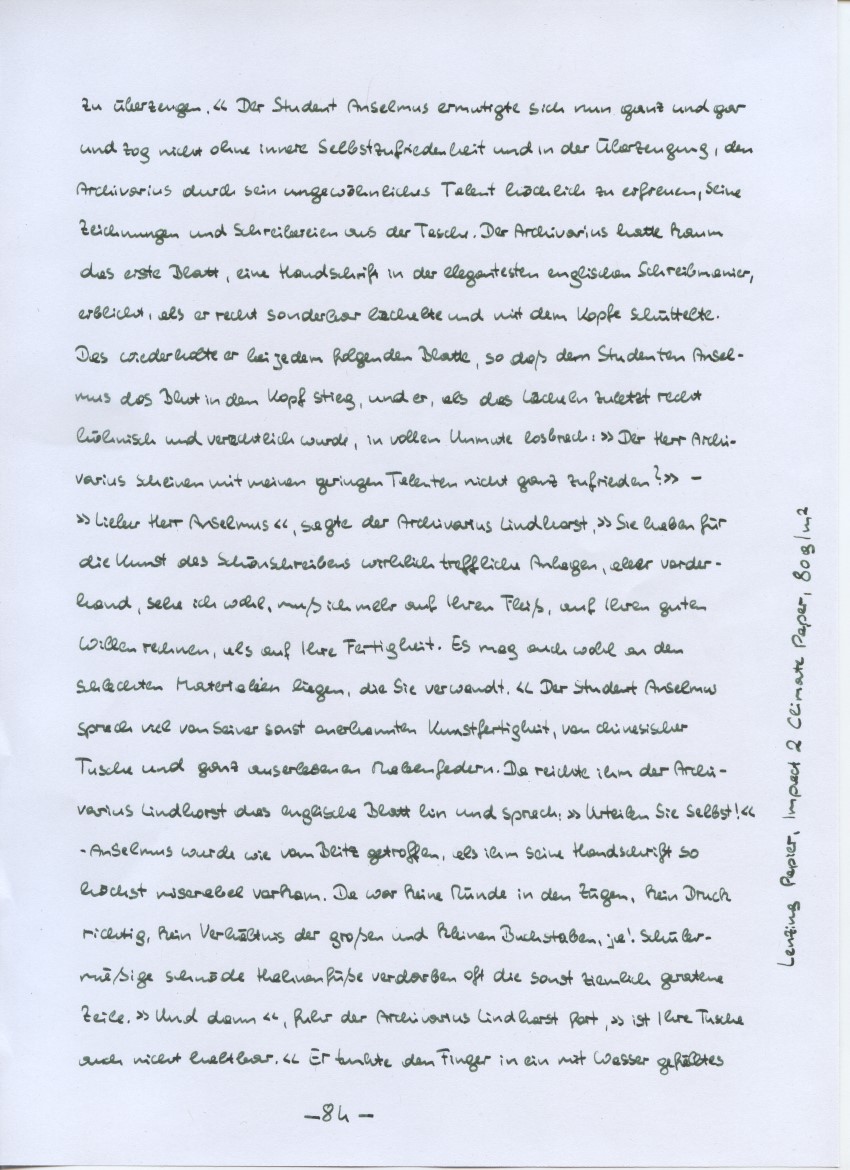 zu überzeugen.“ Der Student Anselmus ermutigte sich nun ganz und gar
und zog nicht ohne innere Selbstzufriedenheit und in der Überzeugung, den
Archivarius durch sein ungewöhnliches Talent höchlich zu erfreuen, seine
Zeichnungen und Schreibereien aus der Tasche. Der Archivarius hatte kaum
das erste Blatt, eine Handschrift in der elegantesten englischen Schreibmanier,
erblickt, als er recht sonderbar lächelte und mit dem Kopfe schüttelte.
Das wiederholte er bei jedem folgenden Blatte, so daß dem Studenten Ansel-
mus das Blut in den Kopf stieg, und er, als das Lächeln zuletzt recht
höhnisch und verächtlich wurde, in vollem Unmute losbrach: »Der Herr Archi-
varius scheinen mit meinen geringen Talenten nicht ganz zufrieden?» –
»Lieber Herr Anselmus«, sagte der Archivarius Lindhorst, »Sie haben für
die Kunst des Schönschreibens wirklich treffliche Anlagen, aber vorder-
hand, sehe ich wohl, muß ich mehr auf Ihren Fleiß, auf Ihren guten
Willen rechnen, als auf Ihre Fertigkeit. Es mag auch wohl an den
schlechten Materialien liegen, die Sie verwandt.« Der Student Anselmus
sprach viel von seiner sonst anerkannten Kunstfertigkeit, von chinesischer
Tusche und ganz auserlesenen Rabenfedern. Da reichte ihm der Archi-
varius Lindhorst das englische Blatt hin und sprach: »Urteilen Sie selbst!«
- Anselmus wurde wie vom Blitz getroffen, als ihm seine Handschrift so
höchst miserabel vorkam. Da war keine Ründe in den Zügen, kein Druck
richtig, kein Verhältnis der großen und kleinen Buchstaben, ja! Schüler-
mäßige schnöde Hahnenfüße verdarben oft die sonst ziemlich geratene
Zeile. »Und dann«, fuhr der Archivarius Lindhorst fort, »ist Ihre Tusche
auch nicht haltbar.« Er tunkte den Finger in ein mit Wasser gefülltes
–84–
Lenzing Papier, Impact 2 Climate Paper, 80g/m2